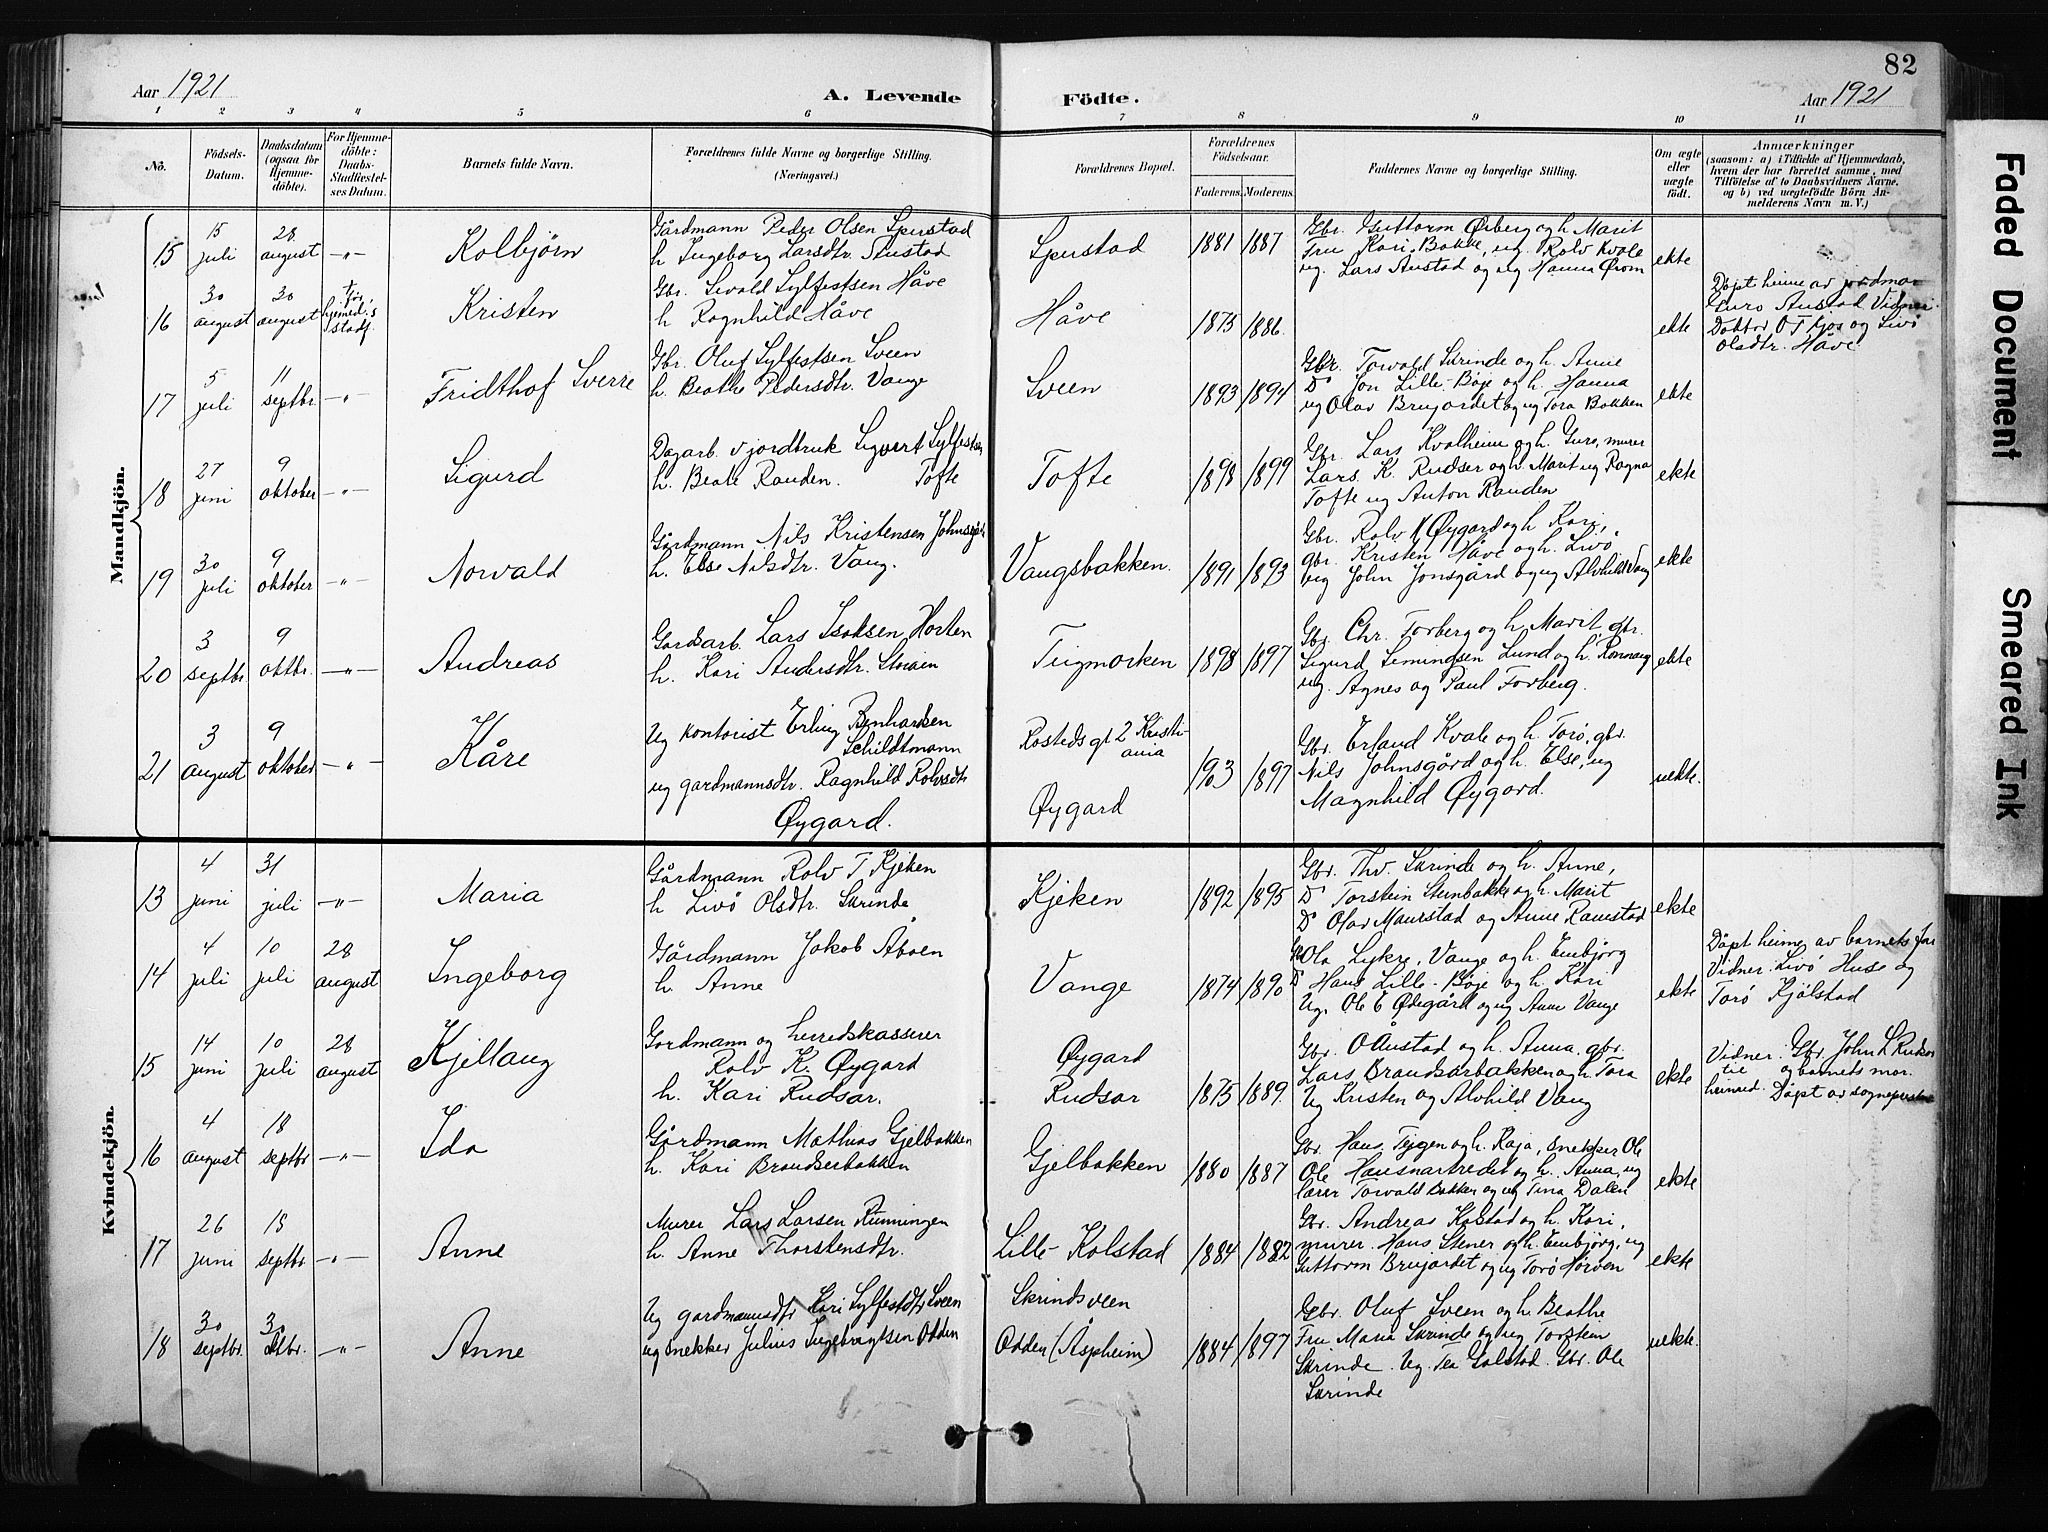 82
Aar 1921
A. Levende
Födte.
Aar 1921
1 2 3 4 5 6 7 8 9 10 11
No.
Födsels-Datum.
Daabsdatum (ogsaa for Hjemmedöbte).
For Hjemmedöbte: Daabs-Stadfæstelses Datum.
Barnets fulde Navn.
Forældrenes fulde Navne og borgerlige Stilling. (Næringsvei.)
Forældrenes Bopæl.
Forældrenes Födselsaar.
Faderens. Moderens.
Faddernes Navne og borgerlige Stilling.
Om ægte eller uægte födt.
Anmærkninger
(saasom: a) i Tilfælde af Hjemmedaab, hvem der har forrettet samme, med Tilföielse af to Daabsvidners Navne, og b) ved uægtefödte Börn Anmelderens Navn m. V.)
Mandkjön.
15 15 juli 28 august -"- Kolbjörn
Gårdmann Peder Olsen Spustad
h Ingeborg Larsdtr. Austad
Spustad 1881 1887
Gbr. Guttorm Öiberg og h Marit
Fru Kari Bakke, ug. Rolv Kvale
ug. Lars Austad og ug Hanna Örom
ekte
16 30 august 30 august Kristen
Gbr. Sivald Sylfestsen Håve
h Ragnhild Håve
Håve 1875 1886.
ekte
Döpt heime av jordmor
Guro Austad Vidner:
Doktor og Livö
Olsdtr. Håve
17 5 juli 11 septbr -"- Fridthof Sverre
Gbr. Oluf Sylfestsen Sveen
h. Beathe Pedersdtr. Vange
Sveen 1893 1894
Gbr. Torvald Skrinde og h. Anne
Do Jon Lille-Böje og h. Hanna
ug Olav Brujordet og ug Tora Bakken
ekte
18 27 juni 9 oktober -"- Sigurd
Dagarb. v jordbruk Sigvart Sylfestsen
h. Beate Rauden. Tofte
Tofte 1898 1899
Gbr. Lars Kvalheim og h. Guro, murer
Lars K. Rudser og h. Marit ug Ragna
Tofte ug Anton Rauden
ekte
19 30 juli 9 oktober -"- Norvald
Gårdmann Nils Kristensen
h. Else Nilsdtr. Vang.
Vangsbakken. 1891 1893
Gbr. Rolv K Öygard og h Kari,
gbr. Kristen Håve og h. Livö
ug John Jonsgård og ug Alvhild Vang
ekte
20 3 septbr 9 oktbr. -"- Andreas
Gardsarb. Lars Isaksen Horten
h. Kari Andersdtr. Stuöen
Teigmorken 1898 1897
Gbr. Chr. Forberg og h Marit, gbr.
Sigurd Semingsen Lund og h. Rønnaug
ug. Agnes og Paul Forberg.
ekte
21 3 august 9 oktober -"- Kåre
Ug kontorist Erling Benhardsen
Schildtmann
ug gardmannsdtr. Ragnhild Rolvsdtr
Öygard.
Rosteds gt 2 Kristiania
Öygard
1903 1897
Gbr. Erland Kvale og h. Torö, gbr.
Nils Johnsgård og h. Else, ug
Magnhild Öygard.
uekte.
Kvindekjön.
13 4 juni 31 juli -"- Maria
Gårdmann Rolv T Kjeken
h Livö Olsdtr. Skrinde
Kjeken 1892 1895
Gbr. Thv. Skrinde og h. Anne,
Do Torstein Stenbakke og h. Marit
Do Olav Maurstad og Anne Ramstad
ekte
14 4 juli 10 juli 28 august Ingeborg
Gårdmann Jakob Åböen
h. Anne
Vange 1874 1890
Gbr Ola Lykre, Vange og h. Embjörg
Do Hans Lille-Böje og h. Kari
Ug. Ole E Ödegård og ug Anne Vange
ekte
Döpt heime av barnets far
Vidner: Livö Huse og
Torö Kjölstad
15 14 juni 10 juli 28 august Kjellaug
Gardmann og herredskasserer
Rolv K. Öygard
h. Kari Rudsar.
Öygard
Rudsar
1875 1889.
Gbr. O Austad og h. Anna, gbr.
Lars Brandsarbakken og h. Tora
Ug Kristen og Alvhild Vang
ekte
Vidner: Gbr. John L Rudsar
og barnets mor.
Döpt av sogneprest
16 4 august 18 septbr -"- Ida
Gårdmann Mathias Gjelbakken
h. Kari Brandserbakken
Gjelbakken 1880 1887
Gbr. Hans Teigen og h. Kaja, snekker Ole
Ole og h. Anna, ug
lærer Torvald Bakken og ug Tina Dalen
ekte
17 26 juni 18 septbr -"- Anne
Murer Lars Larsen Runningen
h. Anne Thorstensdtr.
Lille Kolstad 1884 1882
Gbr. Andreas Kolstad og h. Kari,
murer. Hans Stener og h. Embjörg, ug
Guttorm Brujordet og ug Torö Hörven
ekte
18 30 septbr. 30 oktbr. -"- Anne
Ug gardmannsdtr Kari Sylfestdtr Sveen
ug snekker Julius Ingebregtsen Odden
Skrindsveen
Odden (Aspheim) 1884 1897
Gbr. Oluf Sveen og h. Beathe
Fru Maria Skrinde og ug Torstein
Skrinde. Ug. Tea Golstad. Gbr. Ole
Skrinde
uekte.
Faded Document
Smeared Ink